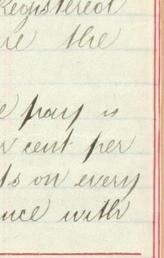 Registered
the
pay is
cent per
on every
with